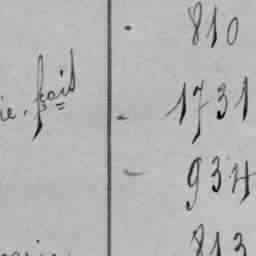 810
fait 1731
934
813